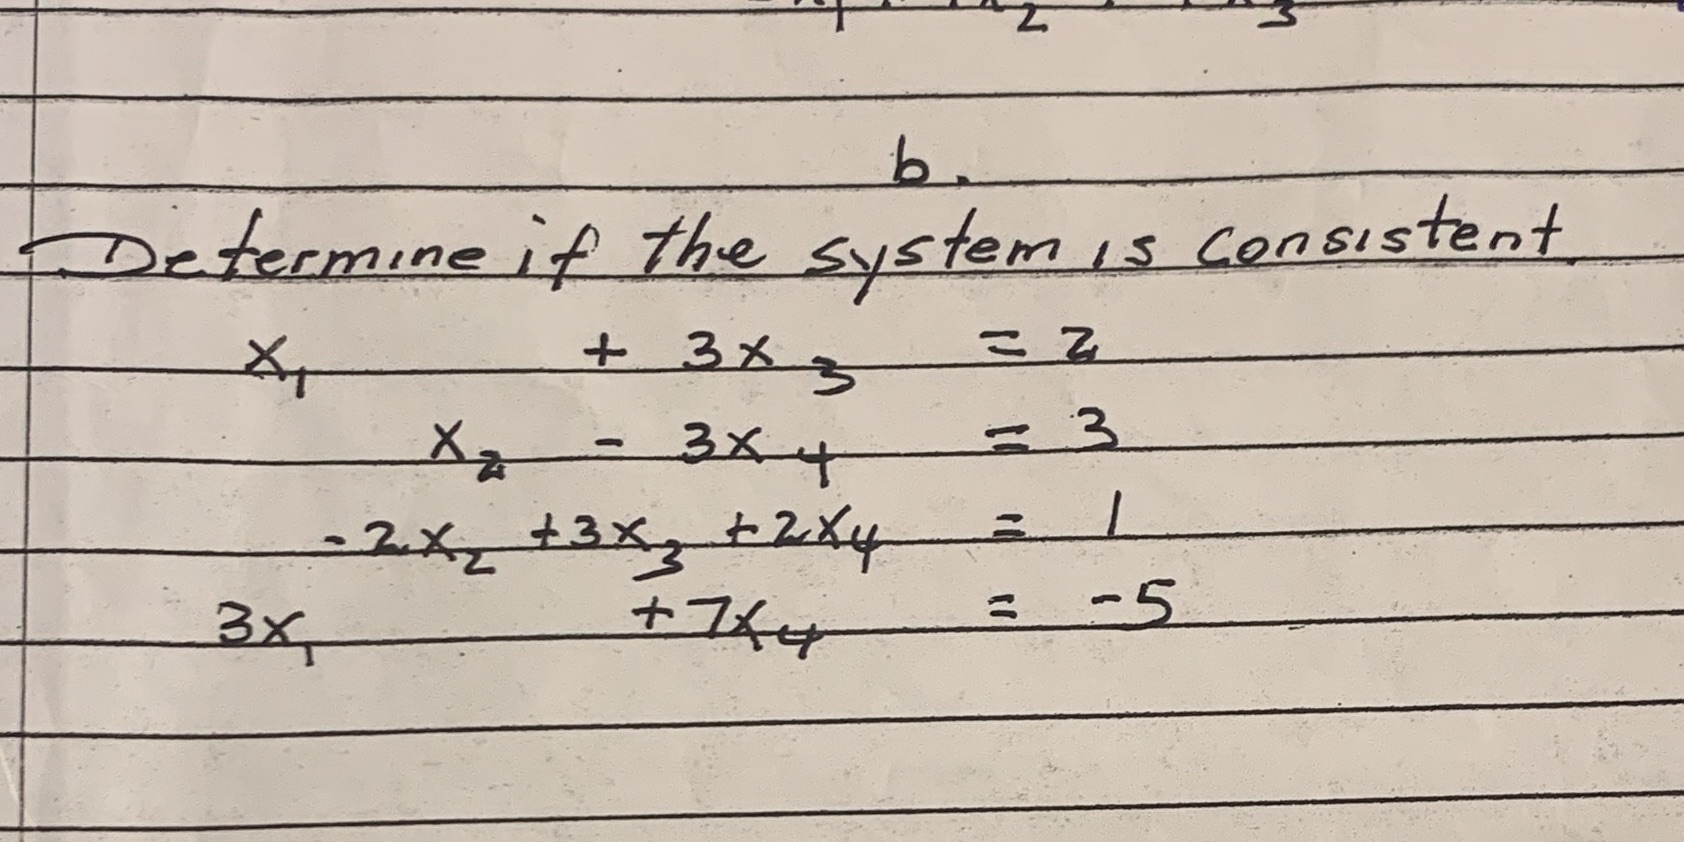 b.
Determine if the system is consistent.
x₁ + 3x₃ = 2
x₂ - 3x₄ = 3
-2x₂ +3x₃ +2x₄ = 1
3x₁ +7x₄ = -5